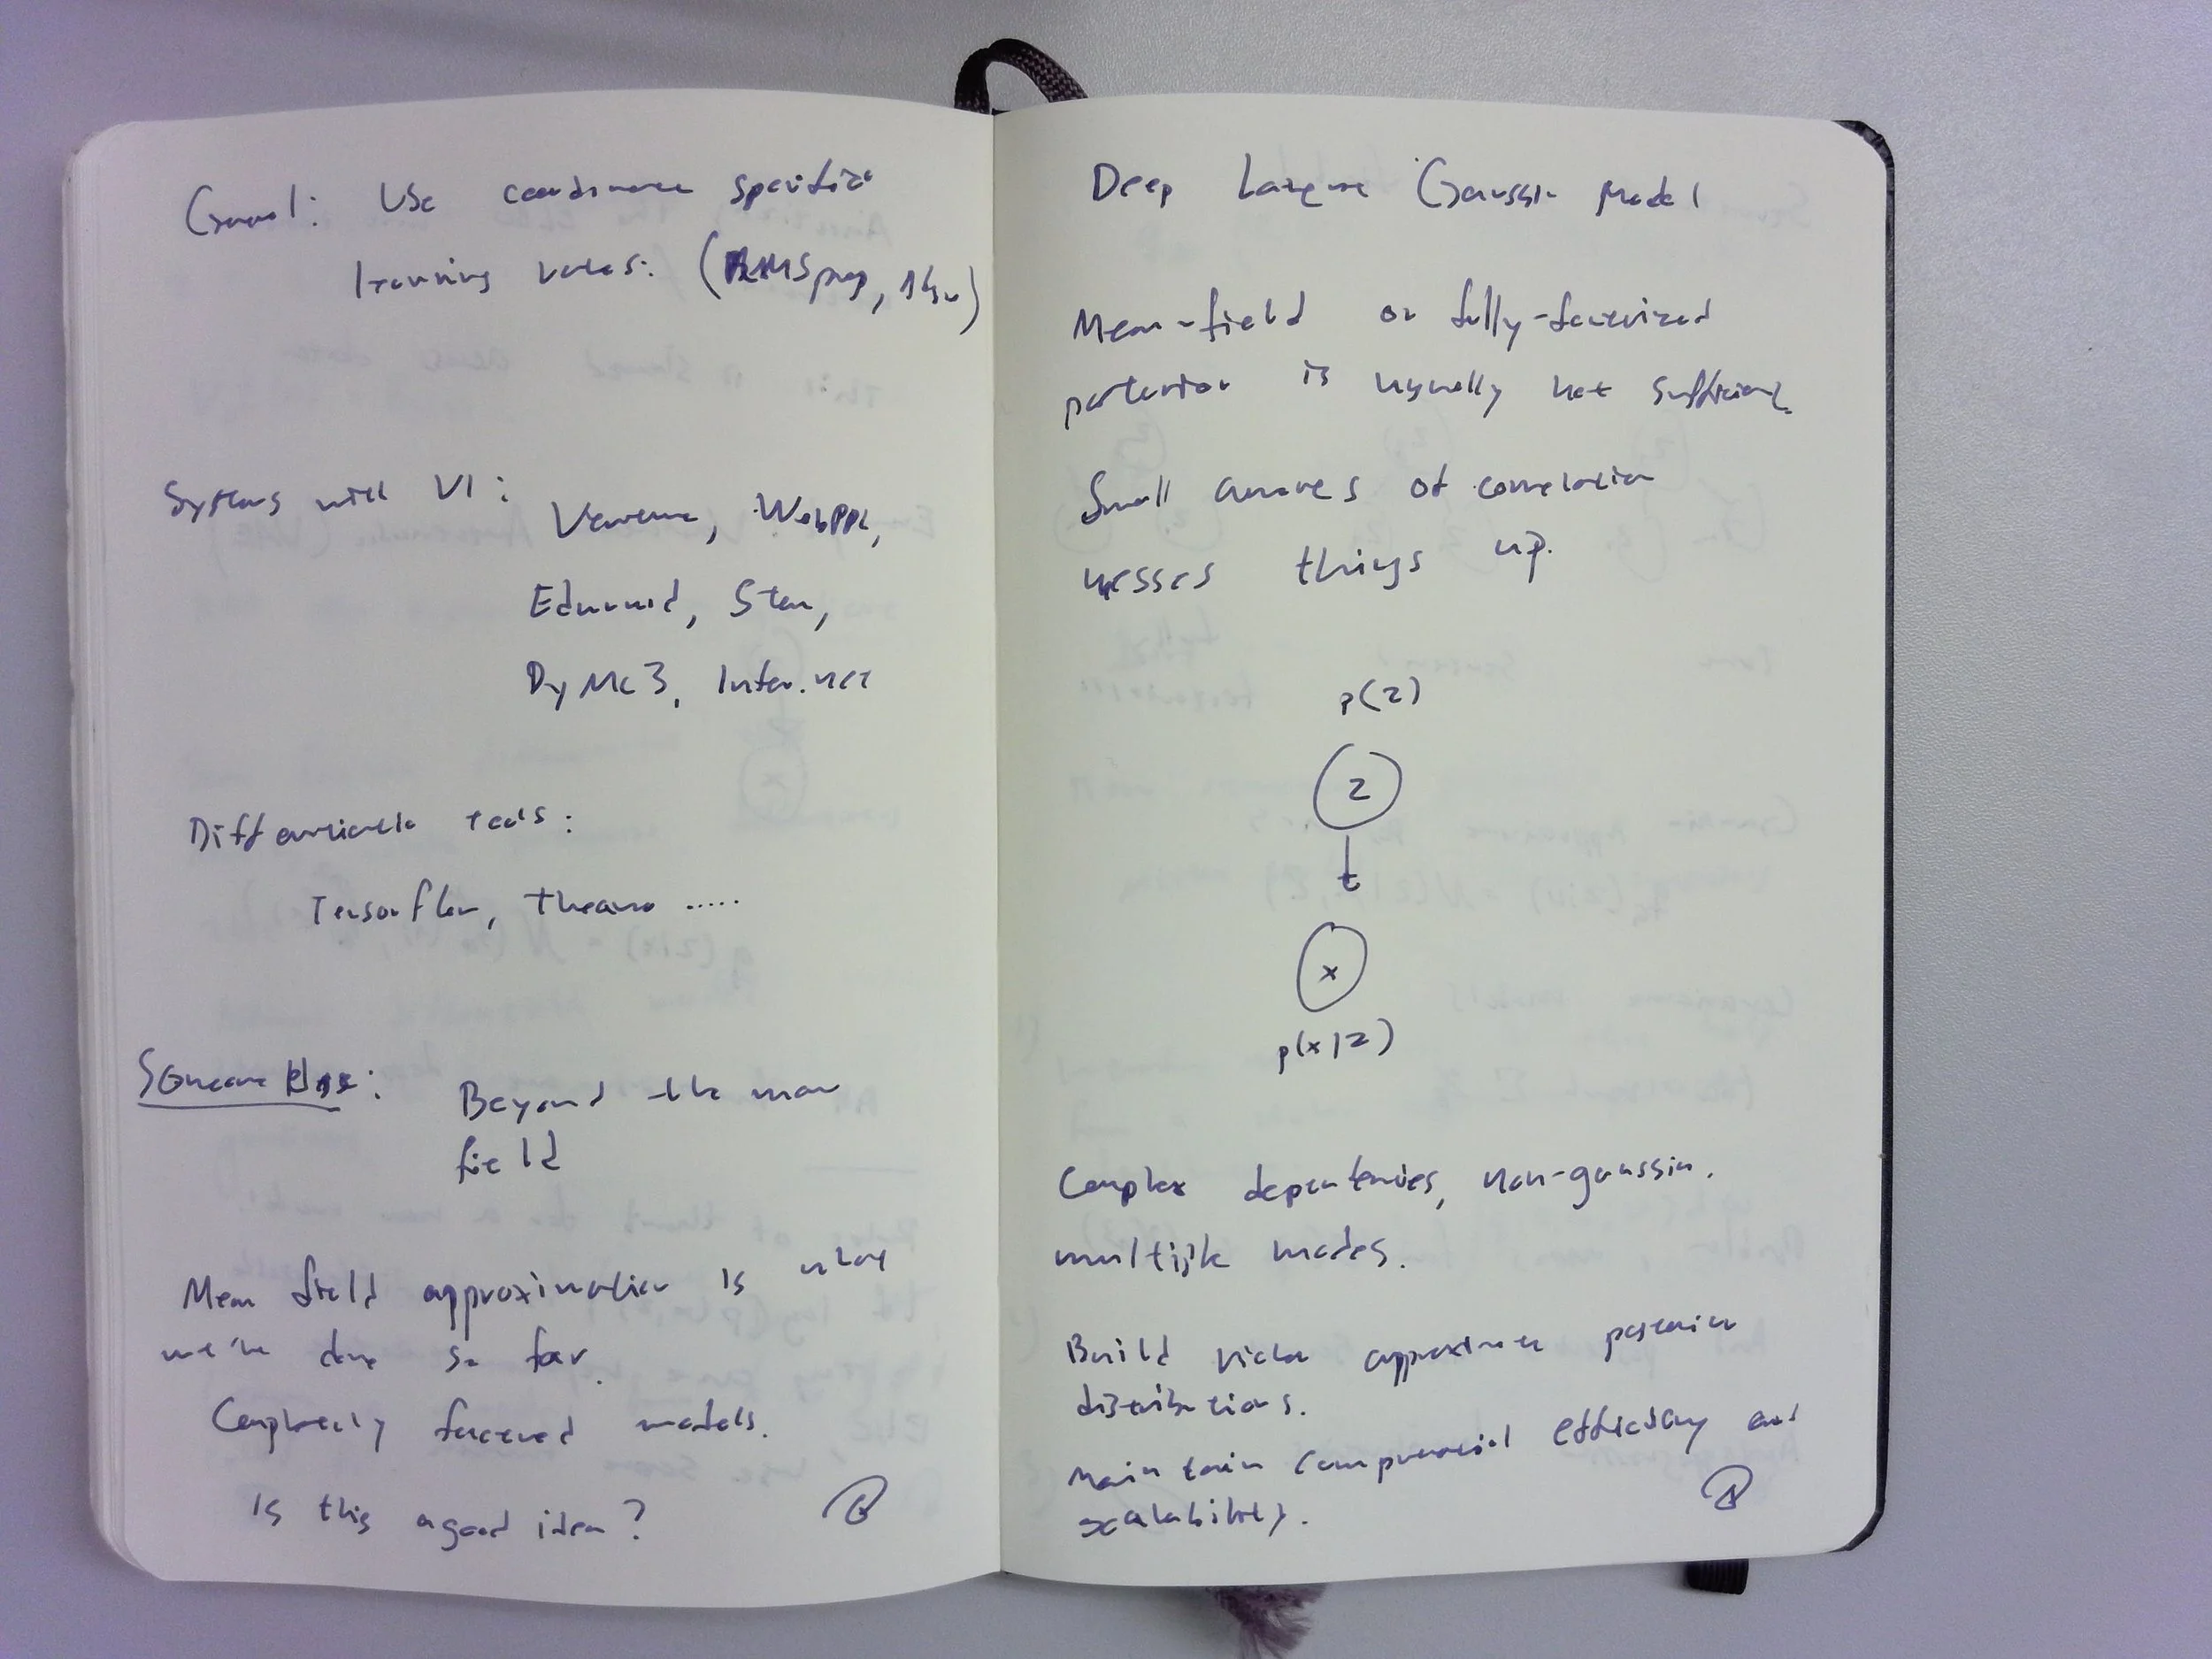 General: Use coordinate specific
learning rates: (RMSprop, Ada)
Systems with VI:
Venture, WebPPL,
Edward, Stan,
PyMC3, Infer.net
Differentiable tools:
Tensorflow, theano .....
Someone Else:
Beyond the mean
field
Mean field approximation is what
we've done so far.
Completely factored models.
Is this a good idea?
Deep Latent Gaussian Model
Mean-field or fully-factorized
posterior is usually not sufficient.
Small amounts of correlation
messes things up.
p(z)
z
x
p(x|z)
Complex dependencies, non-gaussian.
multiple modes.
Build richer approximate posterior
distributions.
Maintain computational efficiency and
scalability.